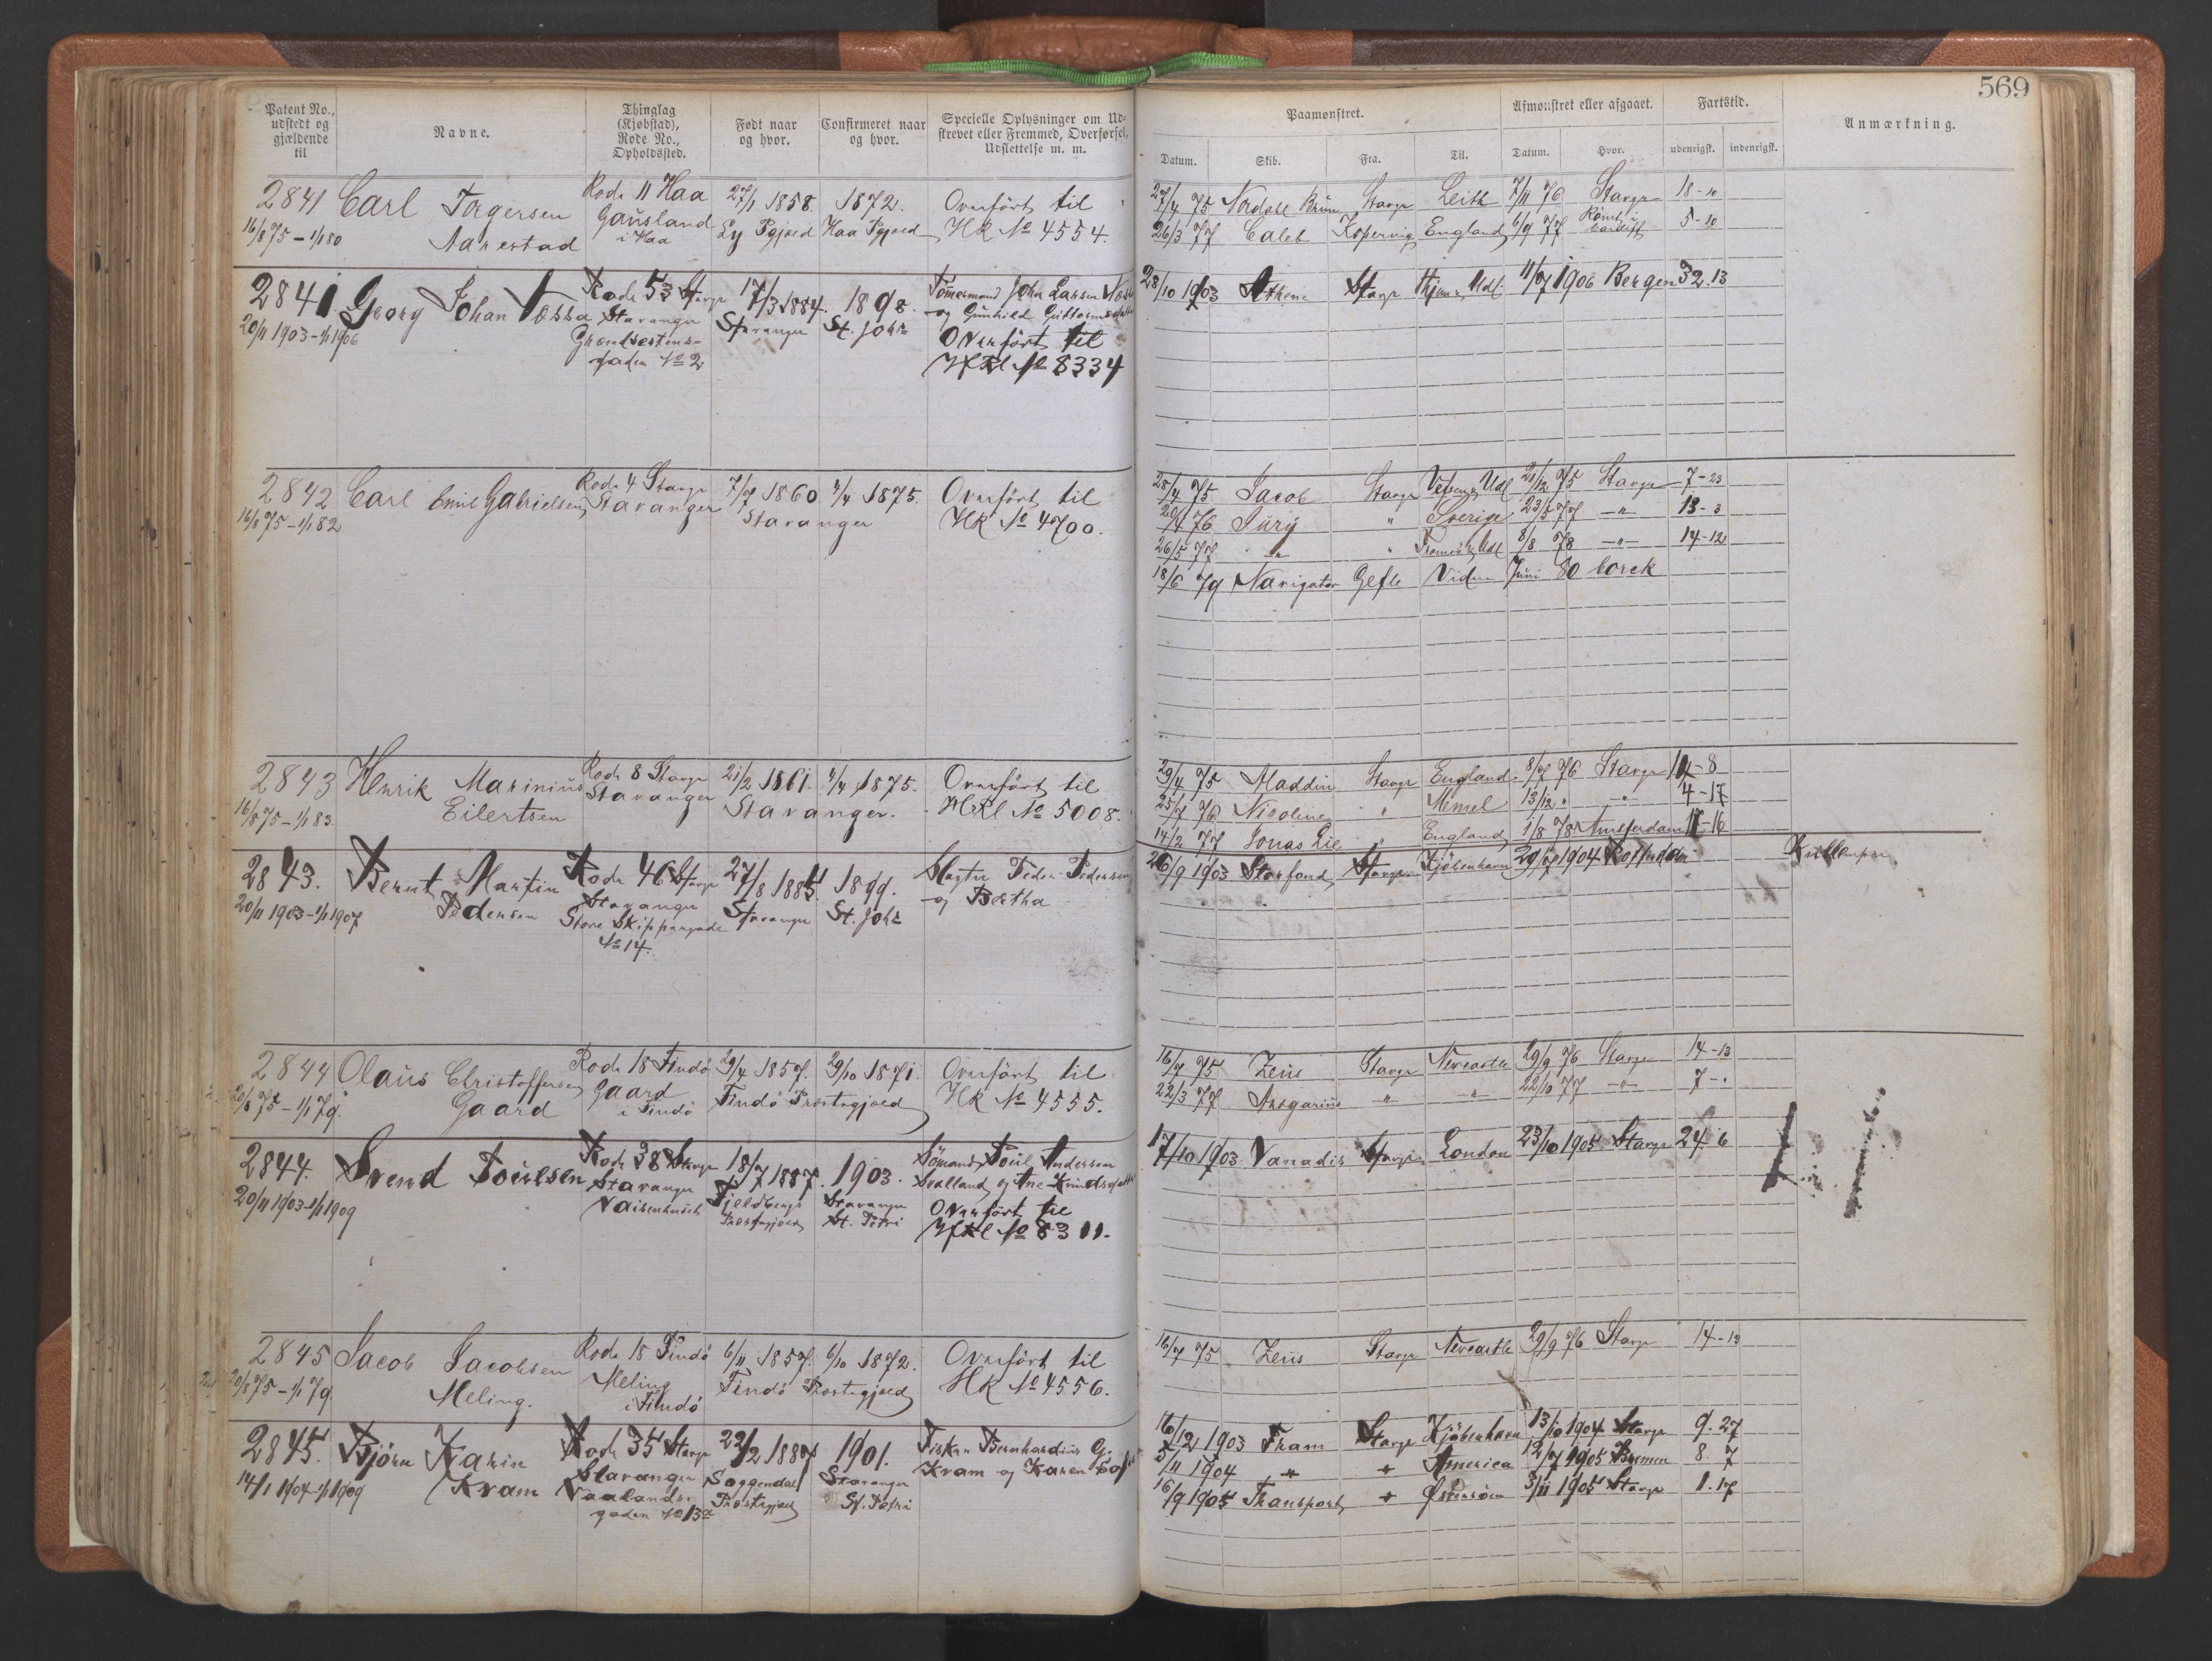 569
Patent No., udstedt og gjældende til | Navne. | Thinglag (Kjøbstad), Rode No., Opholdssted. | Født naar og hvor. | Confirmeret naar og hvor. | Specielle Oplysninger om Udskrevet eller Fremmed, Overførsel, Udslettelse m. m. | Paamønstret. | Afmønstret eller afgaaet. | Fartstid. | Anmærkning.
Datum. | Skib. | Fra. | Til. | Datum. | Hvor. | udenrigsk. | indenrigsk.
2841 Carl Torgersen | Rode 11 Haa | 27/1 1858. | 1872. | Overført til | 27/4 75 Nordahl Brun | Stavgr | Leith | 7/11 76 | Stavgr | 18-10
16/8 75 - 1/1 80 Aarestad | Gausland i Haa | Ly Pgjæld | Haa Pgjæld | HK No 4554. | 26/3 77 Caleb | Kopervig | England | 6/9 77 | Rømt i Cardiff | 5-10
2841 Georg Johan Næssa | Rode 53 Stavgr | 17/3 1884. | 1898. | Tømmermand John Larsen | 28/10 1903 Athene | Stavgr | Udl. | 11/7 1906 Bergen | 32.13
20/11 1903-1/1 1906 | Stavanger | Stavanger | St. Johs | og Gunhild
gaden No 2 | Overført til
HKl No 8334
2842 Carl Emil Gabrielsen | Rode 4 Stavgr | 7/7 1860 | 4/4 1875. | Overført til | 28/4 75 Jacob | Stavgr | Udl | 21/12 75 Stavgr | 7-23
16/8 75-1/1 82 | Stavanger | Stavanger | HK No 4700. | 20/4 76 Jury | " | Sverige | 23/5 77 -"- | 13-3
26/5 77 -"- | " | Udl | 8/8 78 -"- | 14-12
18/6 79 Navigator | Gefle | Juni 80
2843 Henrik Marinius | Rode 8 Stavgr | 21/2 1861. | 4/4 1875. | Overført til | 29/4 75 Aladdin | Stavgr | England | 8/7 76 Stavgr | 14-8
16/8 75-1/1 83. Eilertsen | Stavanger | Stavanger. | HKl No 5008. | 25/7 76 Nicoline | " | Memel | 13/12 " -"- | 4-17
14/2 77 Jonas Lie | " | England | 1/8 78 Amsterdam | 17-16
2843. Bernt Martin | Rode 46 Stavgr | 27/8 1885. | 1899. | Slagter Peder Pedersen | 26/9 1903 Storfond | Stavgr | Kjøbenhavn | 29/7 1904 Rotterdam
20/11 1903-1/1 1907 Pedersen | Stavanger | Stavanger | St. Johs | og Bertha
Store Skippergade
No 14.
2844 Olaus Christoffersen | Rode 18 Findø | 29/4 1857. | 29/10 1871. | Overført til | 16/7 75 Zeus | Stavgr | Newcastle | 29/9 76 Stavgr | 14-13
20/8 75-1/1 79. Gaard | Gaard i Findø | Findø Præstegjæld | HK No 4555. | 22/3 77 Ansgarius | -"- | -"- | 22/10 77 -"- | 7-"
2844. Svend Poulsen | Rode 38 Stavgr | 18/7 1887. | 1903. | Sømand Poul Andersen | 17/10 1903 Vanadis | Stavgr | London | 23/10 1905 Stavgr | 24. 6
20/11 1903-1/1 1909 | Stavanger | Fjeldbergs | Stavanger | og Ane
Vaisenhuset | Præstegjæld | St. Petri | Overført til
HKl No 8311.
2845 Jacob Jacobsen | Rode 18 Findø | 6/11 1857. | 6/10 1872. | Overført til | 16/7 75 Zeus | Stavgr | Newcastle | 29/9 76 Stavgr | 14-13
20/8 75-1/1 79 Meling. | Meling i Findø | Findø Præstegjæld | HK No 4556.
2845. Bjørn Karin | Rode 35 Stavgr | 22/2 1887 | 1901. | Fisker Bernhardius G. | 16/12 1903 Fram | Stavgr | Kjøbenhavn | 13/10 1904 Stavgr | 9. 27
14/1 1904-1/1 1909 Kram | Stavanger | Soggendal | Stavanger | Kram og Karen | 5/11 1904 -"- | " | America | 12/7 1905 Bremen | 8. 7
Vaalandsgaden No 13a | Præstegjæld | St. Petri | 16/9 1905 Transport | " | Østersøen | 3/11 1905 Stavgr | 1. 17